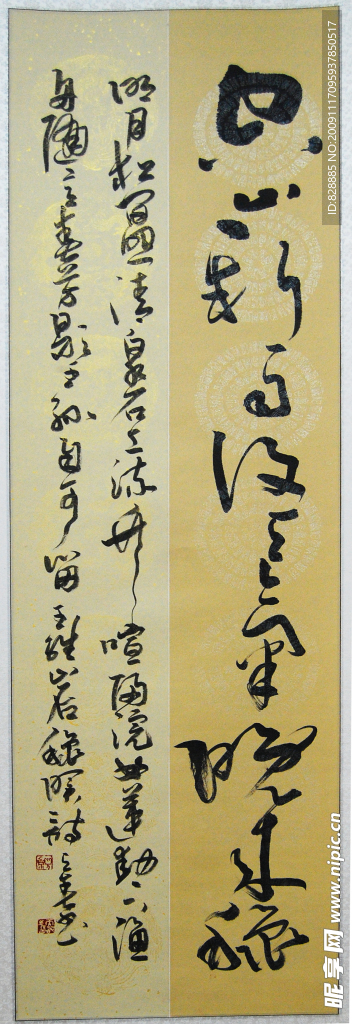 空山新雨後天氣晚來穐
明月松間照清泉石上流竹喧歸浣女蓮動下漁
舟隨意春芳歇王孫自可留王維山居穐暝詩
ID:828885 NO:20091117095937850517
昵享网 www.nipic.cn